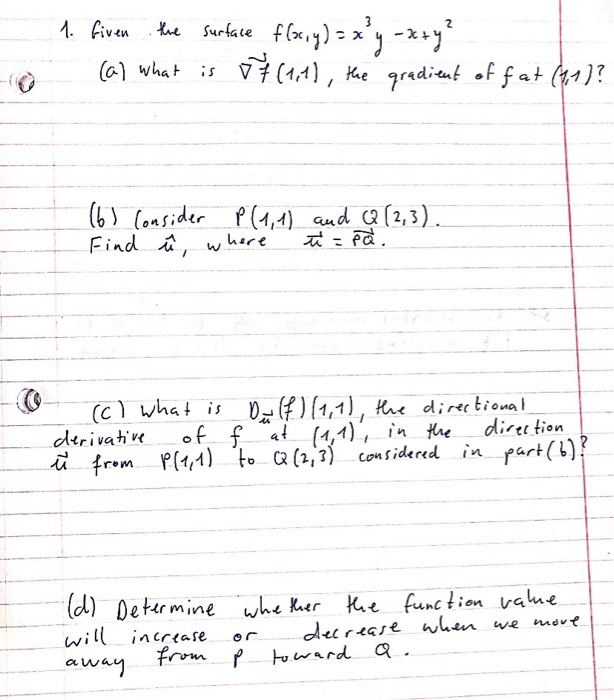 1. Given the surface f(x,y) = x³y - x + y²
(a) What is ∇⃗f (1,1), the gradient of f at (1,1)?
(b) Consider P(1,1) and Q(2,3).
Find û, where u⃗ = PQ⃗.
(c) What is D_u⃗(f)(1,1), the directional
derivative of f at (1,1), in the direction
u⃗ from P(1,1) to Q(2,3) considered in part(b)?
(d) Determine whether the function value
will increase or decrease when we move
away from P toward Q.